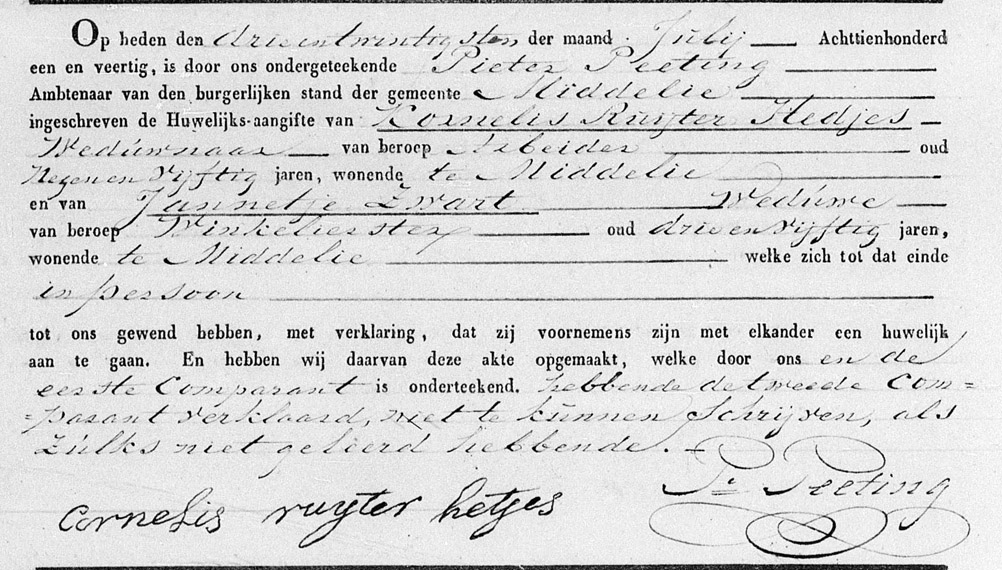 Op heden den drie en twintigsten der maand Julij Achttienhonderd
een en veertig, is door ons ondergeteekende Pieter Peeting
Ambtenaar van den burgerlijken stand der gemeente Middelie
ingeschreven de Huwelijks-aangifte van Kornelis Ruyter Hedjes
Wedúwnaar van beroep Arbeider oud
Negen en Vijftig jaren, wonende te Middelie
en van Jannetje Zwart Wedúwe
van beroep Winkelierster oud drie en Vijftig jaren,
wonende te Middelie welke zich tot dat einde
in persoon
tot ons gewend hebben, met verklaring, dat zij voornemens zijn met elkander een huwelijk
aan te gaan. En hebben wij daarvan deze akte opgemaakt, welke door ons en de
eerste Comparant is onderteekend. hebbende de tweede Com=
=parant verklaard, niet te kúnnen Schrijven, als
Zúlks niet geleerd hebbende. –
Pr. Peeting
cornelis ruyter hetjes